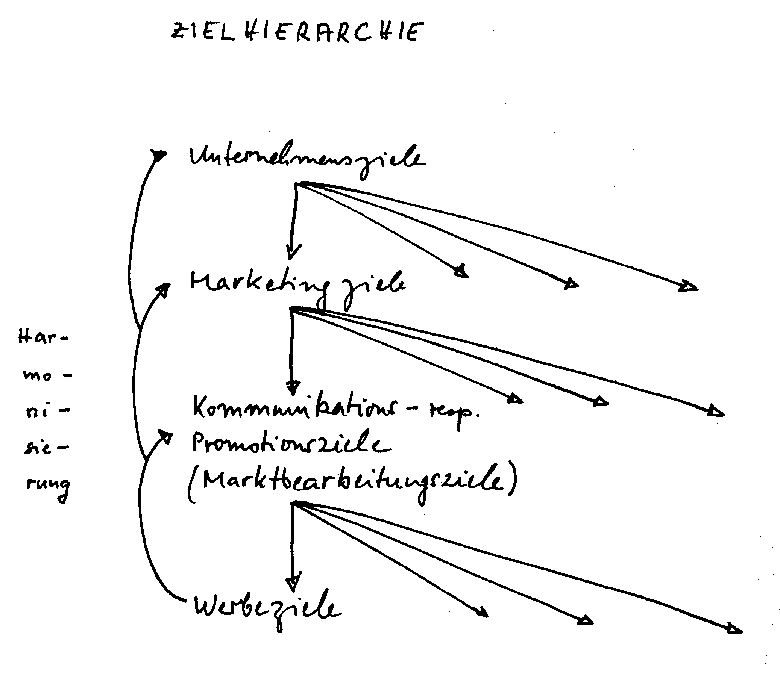 ZIELHIERARCHIE
Unternehmensziele
Marketingziele
Har-
mo-
ni-
sie-
rung
Kommunikations- resp.
Promotionsziele
(Marktbearbeitungsziele)
Werbeziele